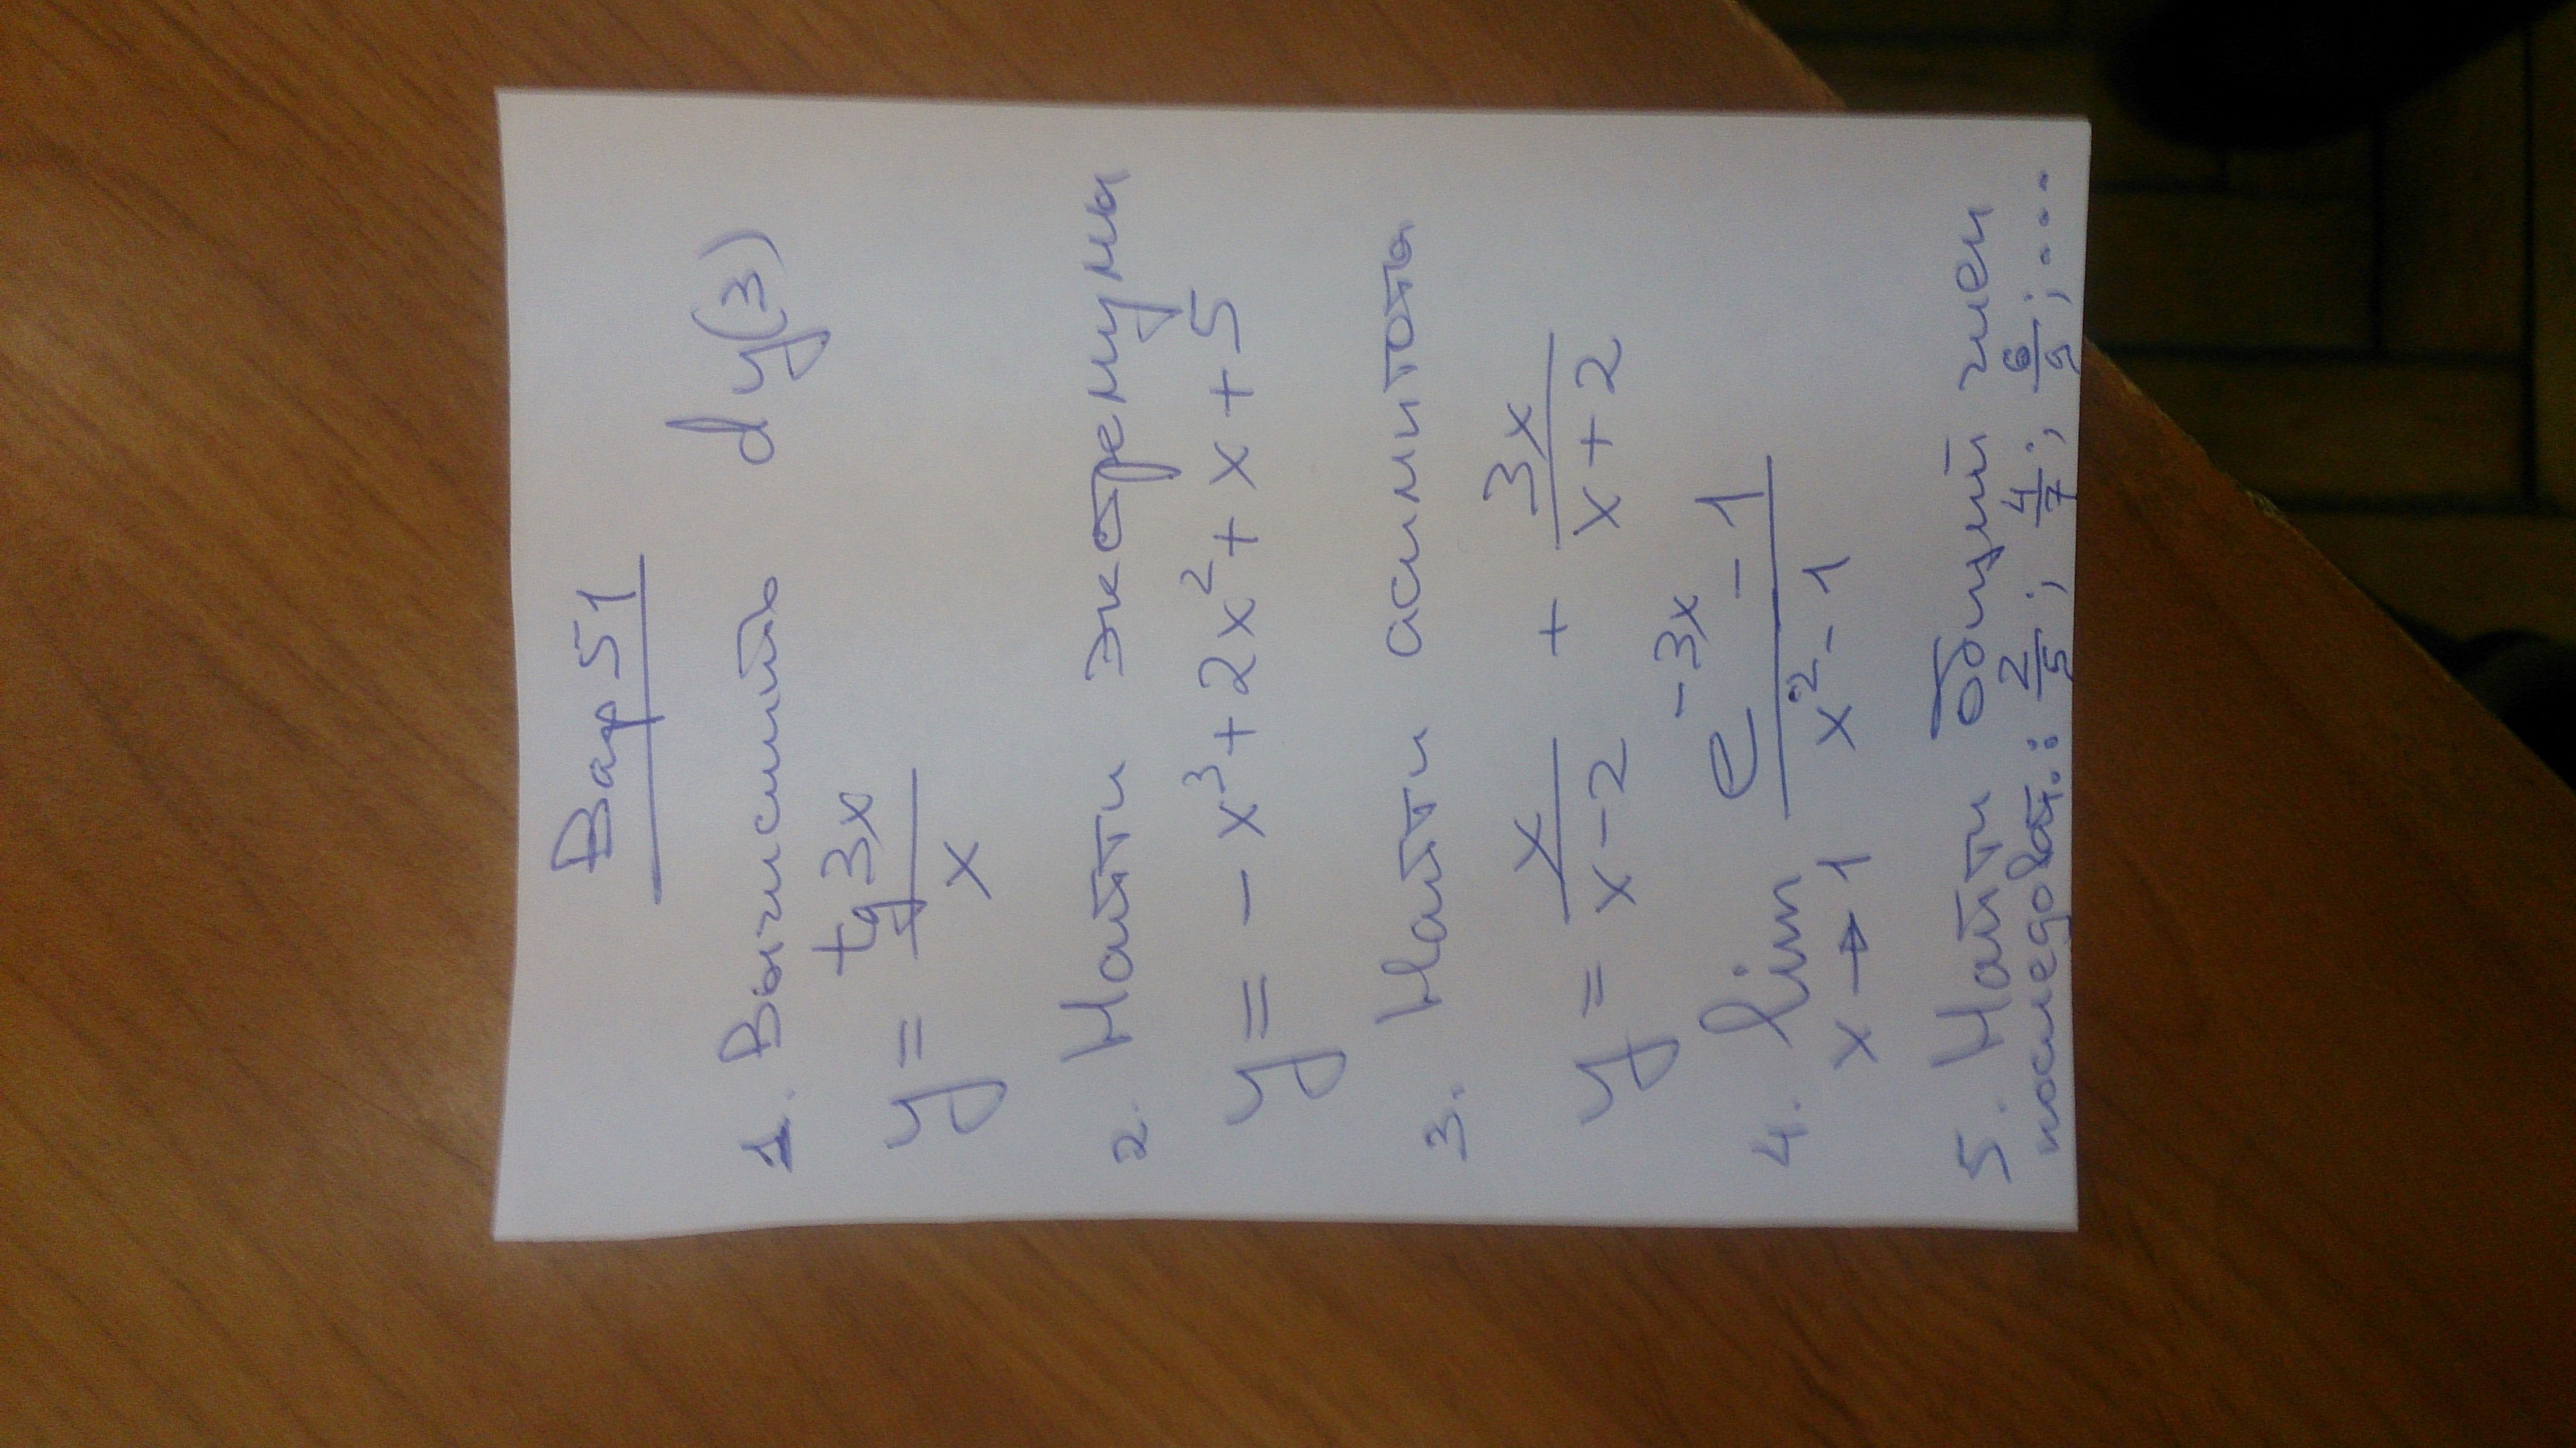 Вар 51
1. Вычислить dy(3)
y = tg3x / x
2. Найти экстремумы
y = - x³ + 2x² + x + 5
3. Найти асимптоты
y = x / (x - 2) + 3x / (x + 2)
4. lim x→1 (e^(-3x) - 1) / (x² - 1)
5. Найти общий член
последоват.: 2/5; 4/7; 6/9; ...